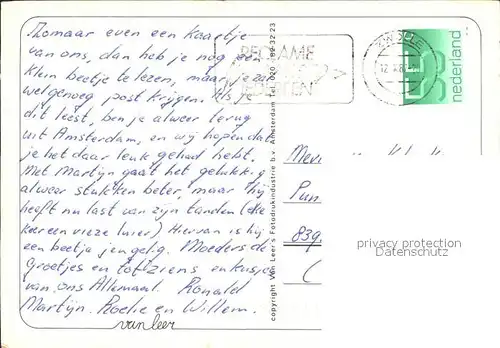 Zomaar even een kaartje
van ons, dan heb je nog een
klein beetje te lezen, maar je zal
wel genoeg post krijgen. Als je
dit leest, ben je alweer terug
uit Amsterdam, en wij hopen dat
je het daar leuk gehad hebt.
Met Martijn gaat het gelukkig
alweer stukken beter, maar hij
heeft nu last van zijn tanden (die
keer een vieze luier) Hiervan is hij
een beetje jengelig. Moeders de
Groetjes en tot ziens en kusjes
van ons Allemaal. Ronald
Martijn. Roelie en Willem.
van leer
copyright Van Leer's Fotodrukindustrie b.v. Amsterdam Tel. 020
RECLAME
ZWOLLE
nederland
Mevr
839
privacy protection
Datenschutz